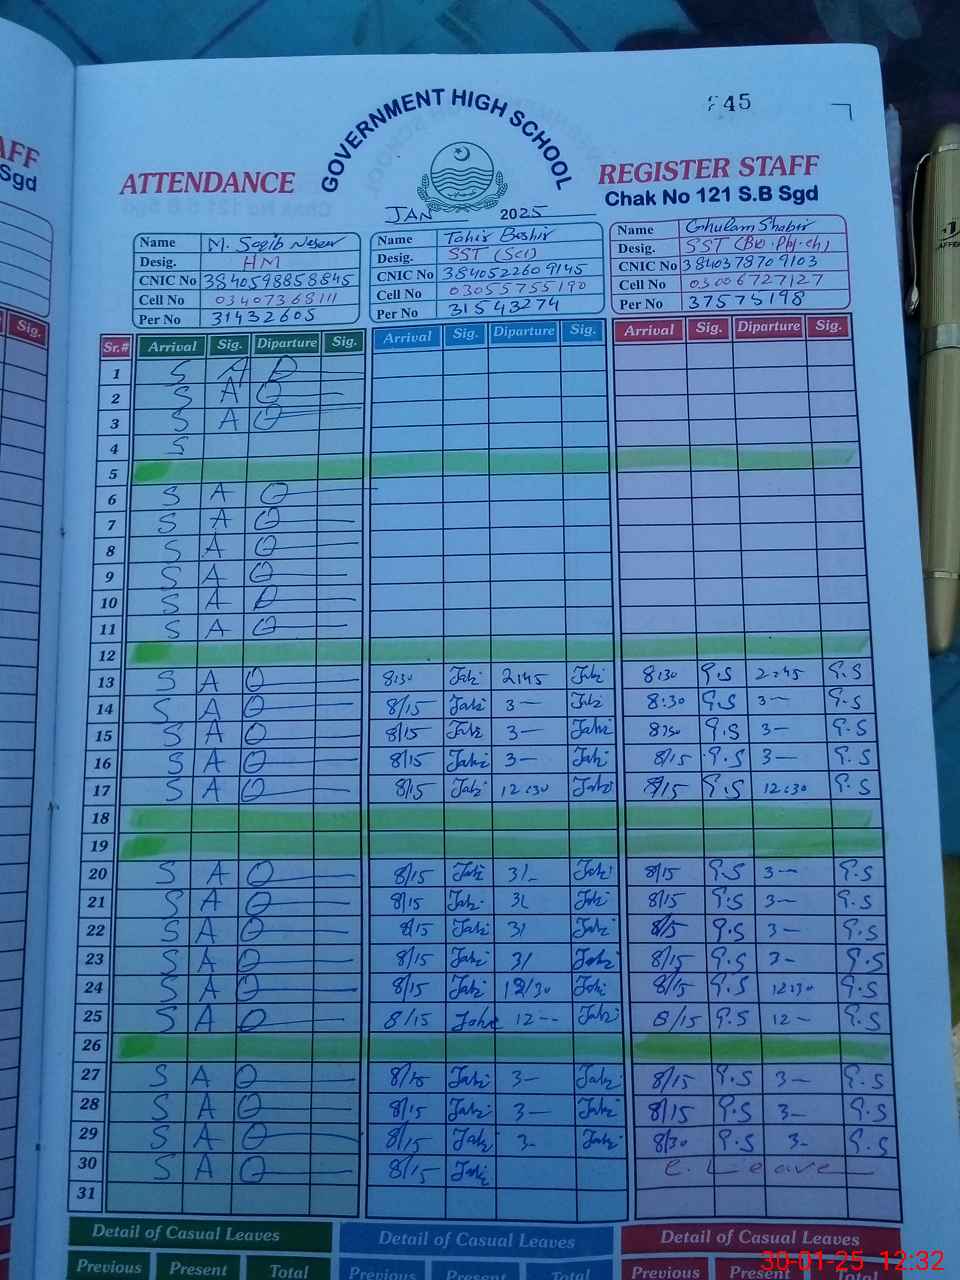 AFF
Sgd
Sig.
845
GOVERNMENT HIGH SCHOOL
ATTENDANCE
REGISTER STAFF
Chak No 121 S.B Sgd
JAN 2025
Name M. Saqib Naseer
Desig. HM
CNIC No 3840598858845
Cell No 03407368111
Per No 31432605
Name Tahir Bashir
Desig. SST (Sci)
CNIC No 3840522609145
Cell No 03055755190
Per No 31543274
Name Ghulam Shabir
Desig. SST (Bio. Phy-ch)
CNIC No 3840378709103
Cell No 03006727127
Per No 37575198
Sr.# Arrival Sig. Diparture Sig. Arrival Sig. Diparture Sig. Arrival Sig. Diparture Sig.
1 S A
2 S A O
3 S A O
4 S
5
6 S A O
7 S A O
8 S A O
9 S A O
10 S A
11 S A O
12
13 S A O 8:30 2:45 8:30 G.S 2:45 G.S
14 S A O 8/15 3— 8:30 G.S 3— G.S
15 S A O 8/15 3— G.S 3— G.S
16 S A O 8/15 3— 8/15 G.S 3— G.S
17 S A O 8/15 12:30 8/15 G.S 12:30 G.S
18
19
20 S A O 8/15 3/- 8/15 G.S 3— G.S
21 S A O 8/15 8/15 G.S 3— G.S
22 S A O 8/15 3/ 8/15 G.S 3— G.S
23 S A O 8/15 3/ 8/15 G.S 3- G.S
24 S A O 8/15 12/30 8/15 G.S 12:30 G.S
25 S A O 8/15 12-- 8/15 G.S 12— G.S
26
27 S A O 8/15 3— 8/15 G.S 3— G.S
28 S A O 8/15 3— 8/15 G.S 3— G.S
29 S A O 8/15 3- 8/30 G.S 3- G.S
30 S A O 8/15 C. Leave
31
Detail of Casual Leaves Detail of Casual Leaves Detail of Casual Leaves
Previous Present Total Previous Present Total Previous Present
30-01-25 12:32